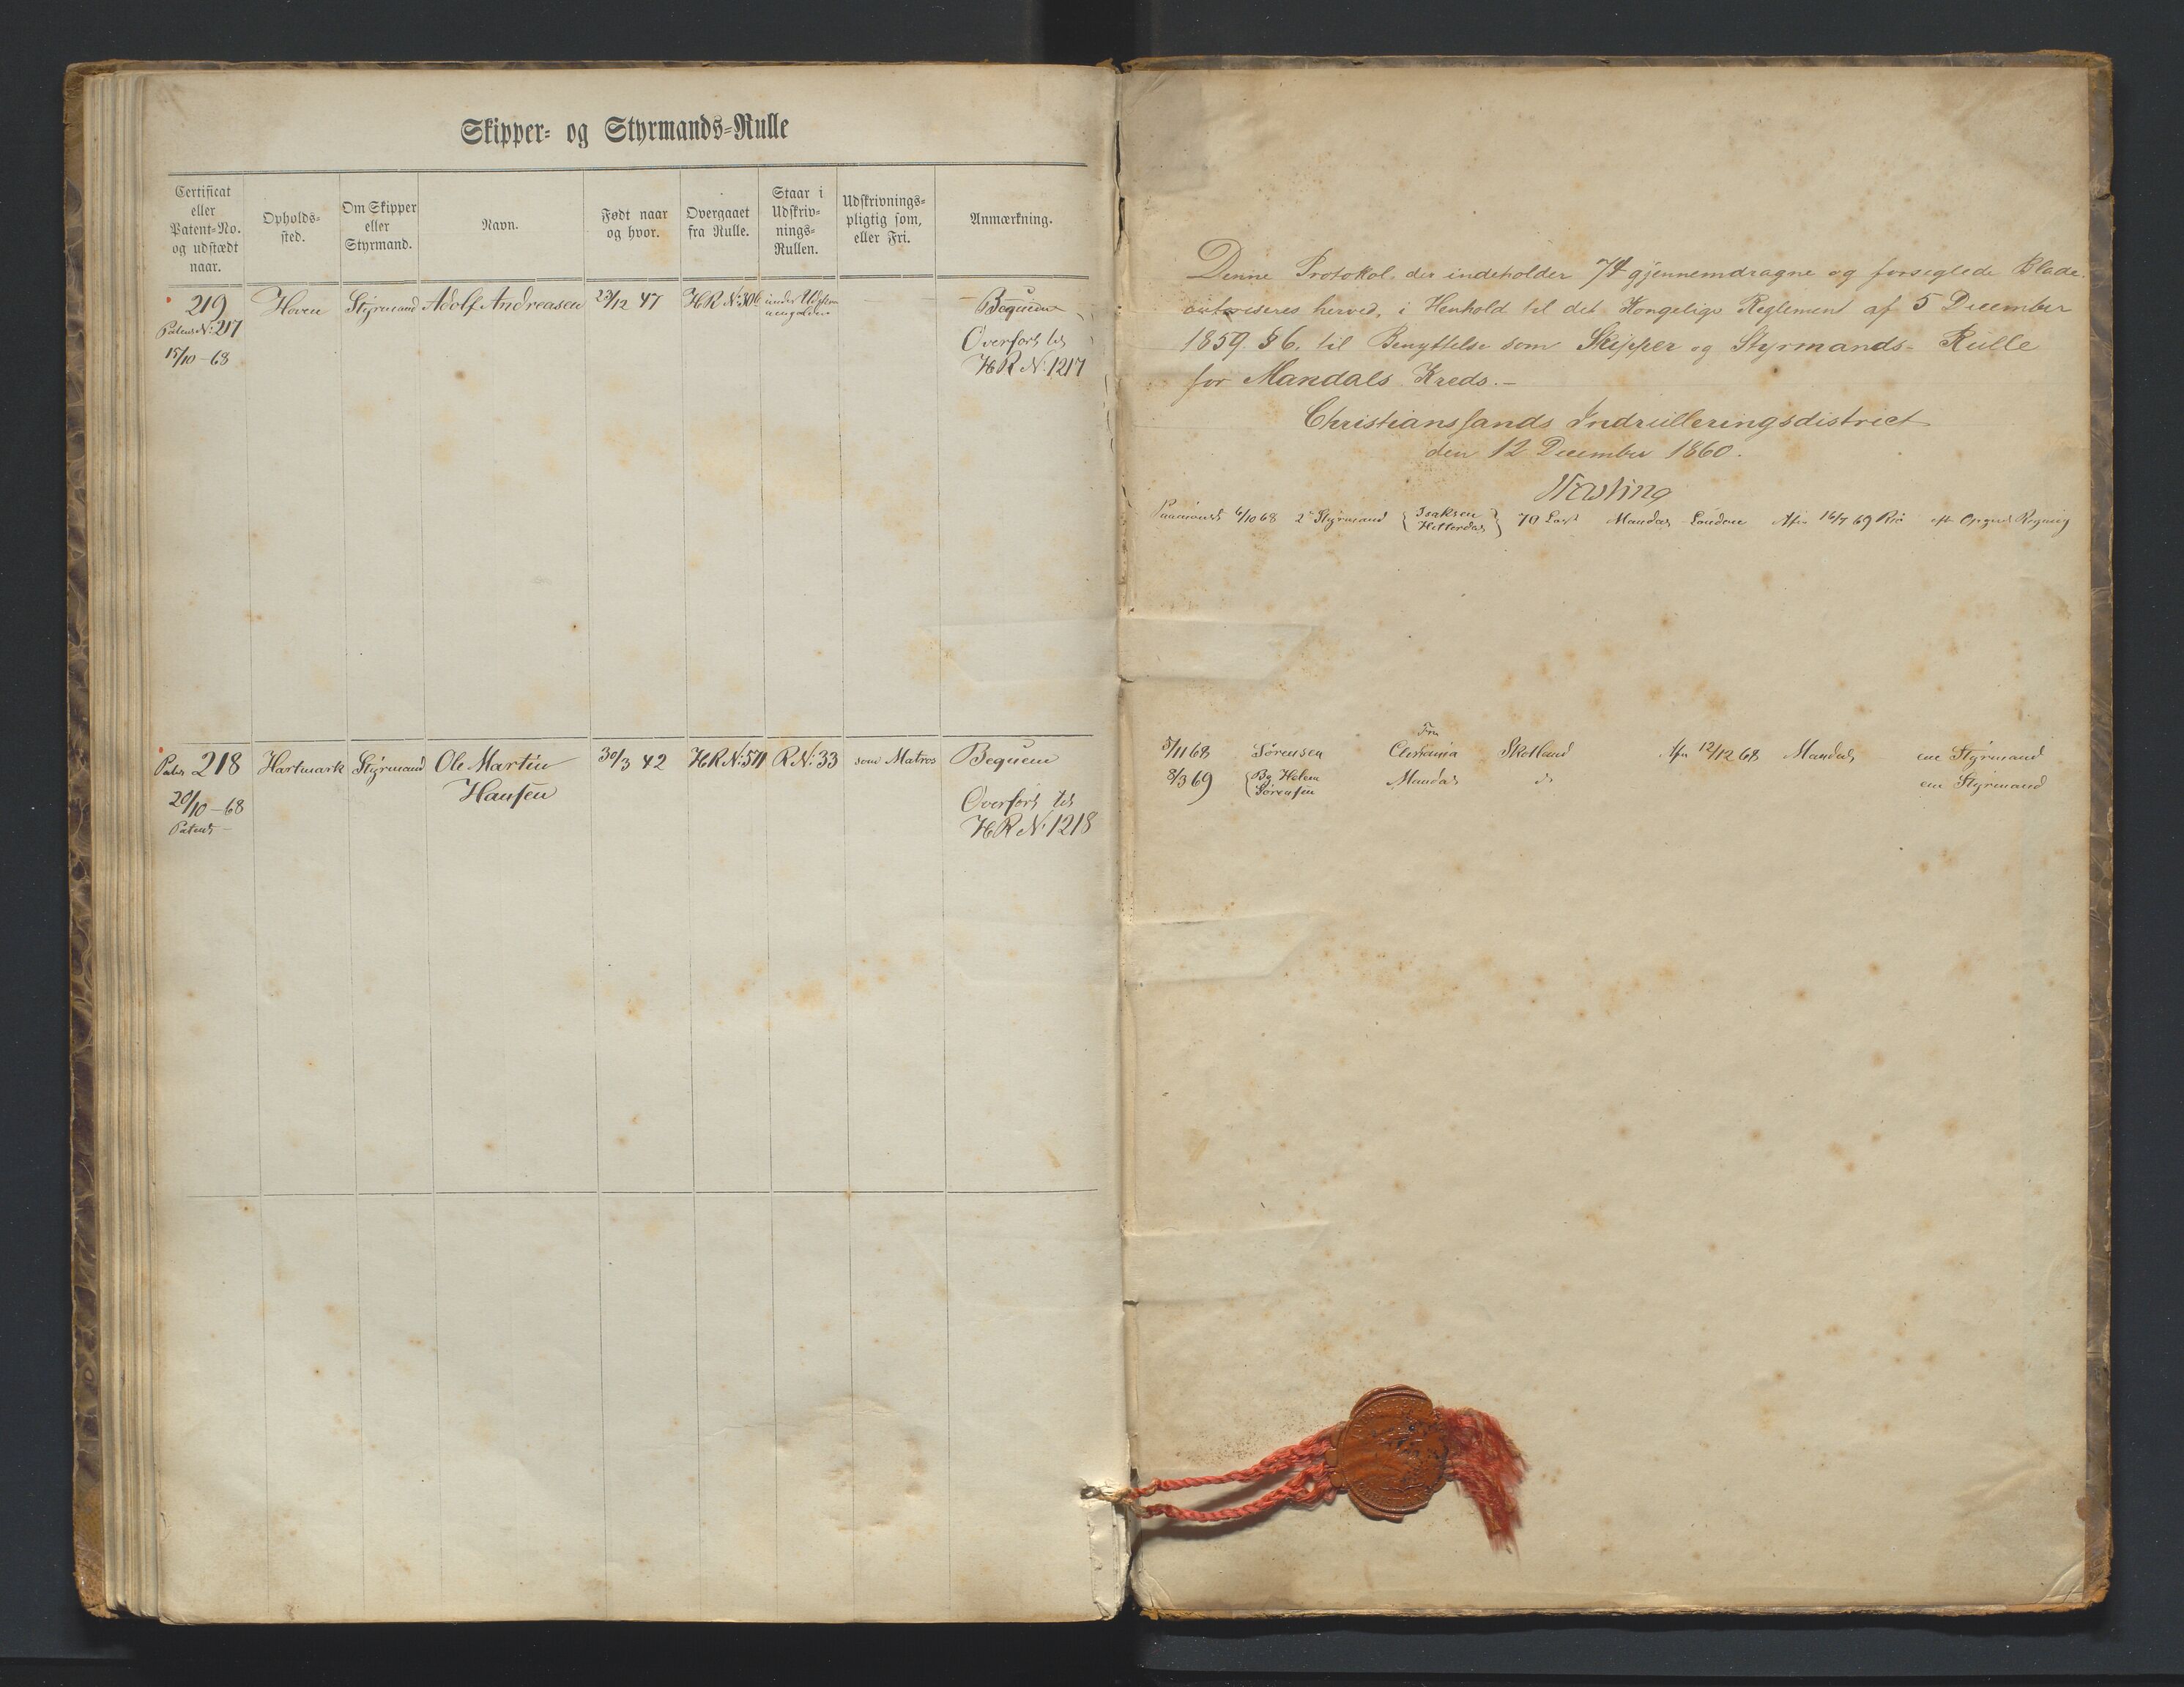 Skipper- og Styrmands-Rulle
Certificat eller Patent-No. og udstædt naar.
Opholds-sted.
Om Skipper eller Styrmand.
Navn.
Født naar og hvor.
Overgaaet fra Rulle.
Staar i Udskriv-nings-Rullen.
Udskrivnings-pligtig som, eller Fri.
Anmærkning.
219 Hoven Styrmand Adolf Andreasen 23/12 47 HR No: 306 under Bequem
Patent No: 217
15/10-68
Overført til
HR No. 1217
Patent 218 Hartmark Styrmand Ole Martin Hansen 30/3 42 HR No: 511 R No: 33 som Matros Bequem
20/10-68
Patent
Overført til
HR No. 1218
Denne Protokol, der indeholder 74 gjennemdragne og forseglede Blade
autoriseres herved, i Henhold til det Kongelige Reglement af 5 December
1859 § 6, til Benyttelse som Skipper og Styrmands-Rulle
for Mandals Kreds.-
Christianssands Indrulleringsdistrict
den 12 December 1860.
6/10 68 2n Styrmand Isaksen Hitterdal 70 Læst Mandal London Afm 16/7 69
5/11 68 Sørensen Fra Christiania Skotland Afm 12/12 68 Mandal ene Styrmand
8/3 69 Bg Helene Sørensen Mandal do ene Styrmand